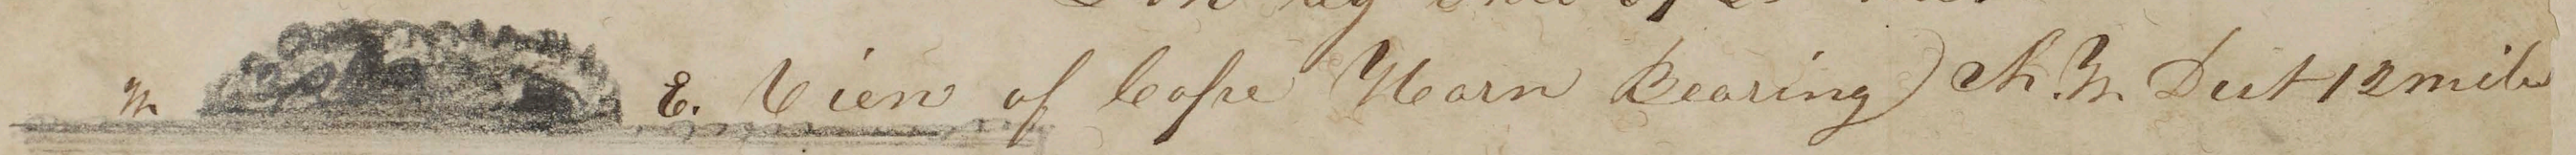 W. E. View of Cape Horn Bearing N.W. Dist 12 mile